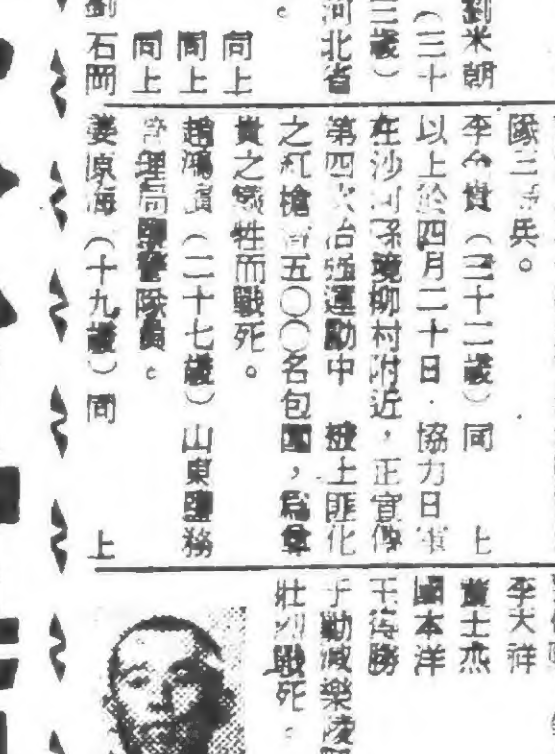 劉米朝
（三十
三歲）
河北省
同上
同上
同上
劉石岡
隊三 兵。
李 貴（三十二歲）同 上
以上於四月二十日．協力日軍
在沙河 境柳村附近，正宣傳
第四次治强運動中 土匪化
之紅槍 五〇〇名包圍，爲
貴之犧牲而戰死。
趙鴻濱（二十七歲）山東鹽務
管理局鹽警隊員。
姜原海（十九歲）同 上
李大祥
董士杰
國本洋
于得勝
于勦滅樂陵
壯烈戰死。